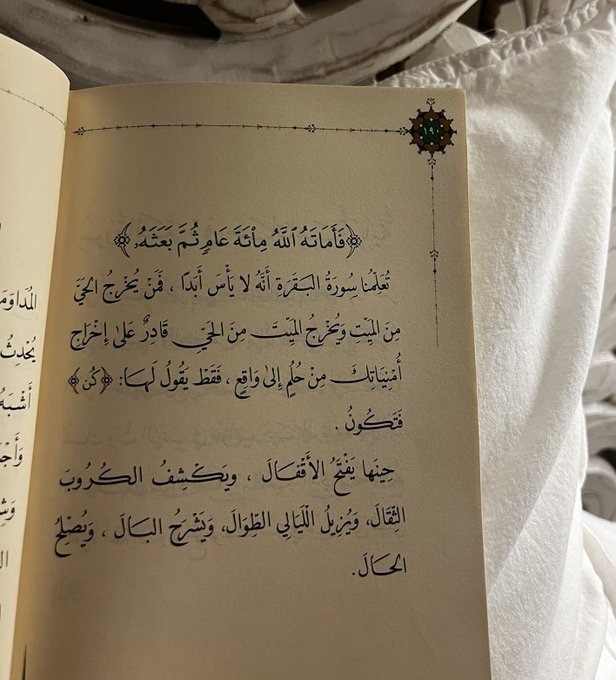 ١٩٠
﴿فَأَمَاتَهُ ٱللَّهُ مِا۟ئَةَ عَامٍ ثُمَّ بَعَثَهُۥ﴾
تُعَلِّمُنا سُورَةُ البَقَرَةِ أَنَّهُ لا يَأْسَ أَبَدًا ، فَمَنْ يُخْرِجُ الحَيَّ
مِنَ المَيِّتِ وَيُخْرِجُ المَيِّتَ مِنَ الحَيِّ قَادِرٌ عَلىٰ إِخْرَاجِ
أُمْنِيَاتِكَ مِنْ حُلُمٍ إِلىٰ وَاقِعٍ ، فَقَطْ يَقُولُ لَهَا: ﴿كُن﴾
فَتَكُونُ .
حِينَها يَفْتَحُ الأَقْفَالَ ، وَيَكْشِفُ الكُرُوبَ
الثِّقَالَ، وَيُزِيلُ اللَّيَالِي الطِّوَالَ، وَيَشْرَحُ البَالَ ، وَيُصْلِحُ
الحَالَ.
المُدَاوَمَ
يُحْدِثُ
أَشْبَهُ